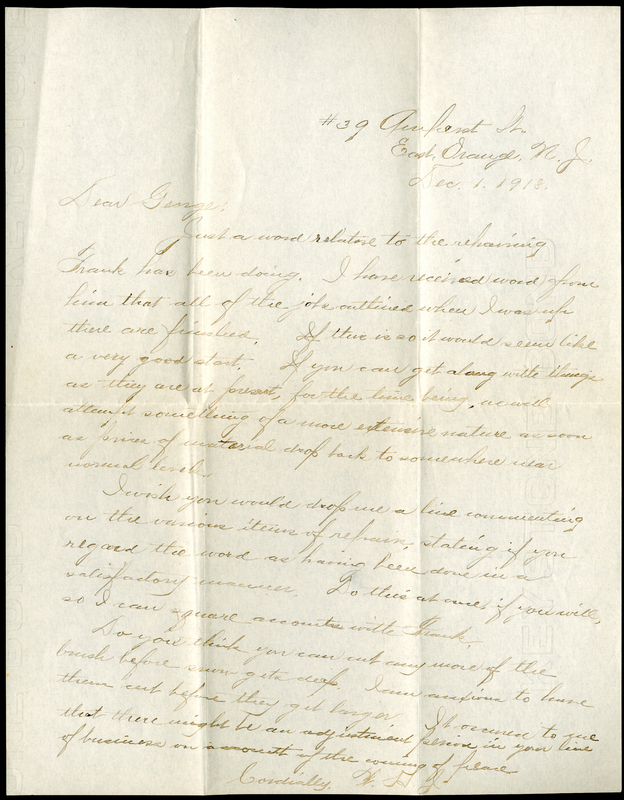 #39 Amherst St.
East Orange, N. J.
Dec. 1. 1918.
Dear George:
Just a word relative to the repairing
Frank has been doing. I have received word from
him that all of the jobs outlined when I was up
there are finished. If this is so it would seem like
a very good start. If you can get along with things
as they are at present, for the time being, we will
attempt something of a more extensive nature as soon
as prices of material drop back to somewhere near
normal level.
I wish you would drop me a line commenting
on the various items of repairs, stating if you
regard the work as having been done in a
satisfactory manner. Do this at once, if you will,
so I can square accounts with Frank.
Do you think you can cut any more of the
brush before snow gets deep. I am anxious to have
them cut before they get larger. It occurred to me
that there might be an adjustment period in your line
of business on account of the coming of peace
Cordially,